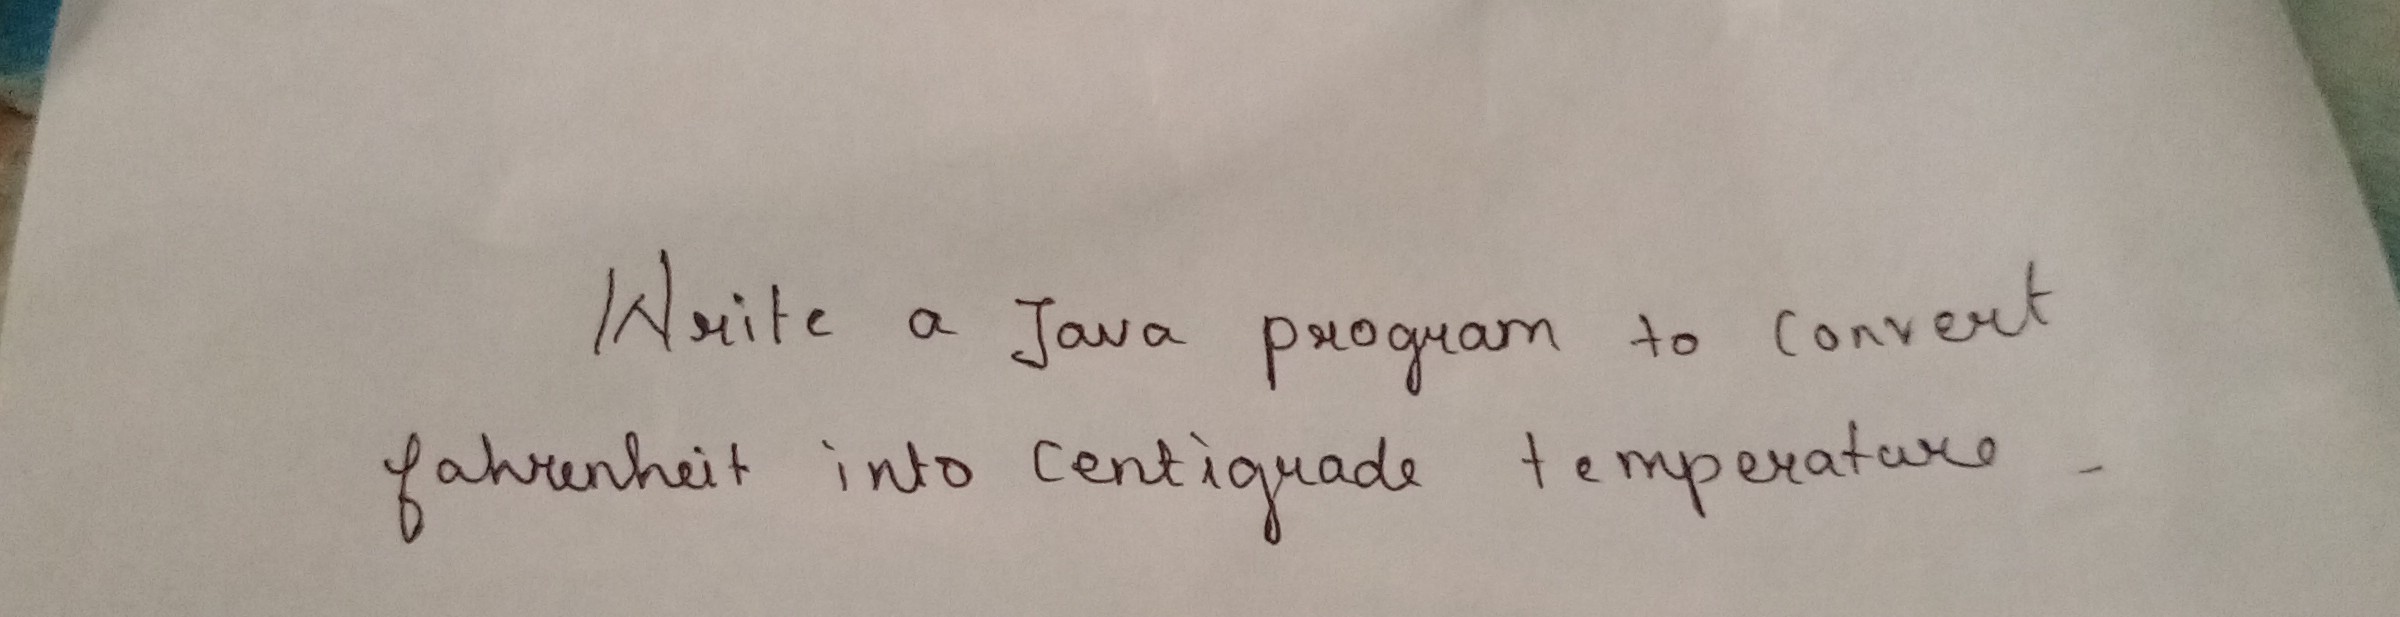 Write a Java program to Convert
fahrenheit into Centigrade temperature -